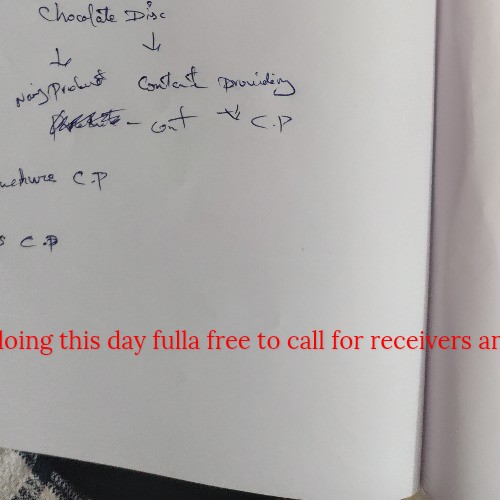 Chocolate Disc
Product Contact Providing
C.P
C.P
C.P
doing this day fulla free to call for receivers an